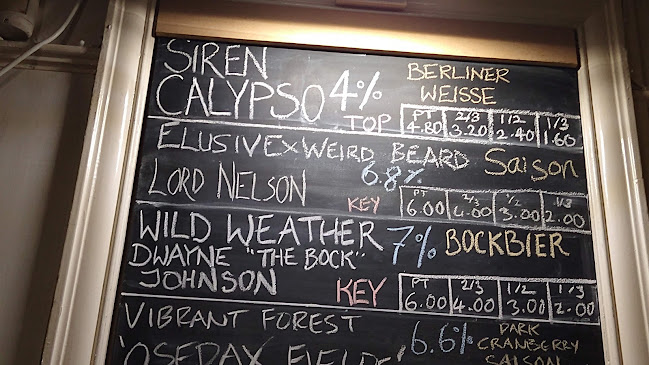 SIREN
CALYPSO 4% BERLINER WEISSE
TOP
PT 2/3 1/2 1/3
4.80 3.20 2.40 1.60
ELUSIVE x WEIRD BEARD Saison
LORD NELSON 6.8%
KEY
PT 2/3 1/2 1/3
6.00 4.00 3.00 2.00
WILD WEATHER 7% BOCKBIER
DWAYNE "THE BOCK"
JOHNSON KEY
PT 2/3 1/2 1/3
6.00 4.00 3.00 2.00
VIBRANT FOREST 6.6% DARK
CRANBERRY
SAISON